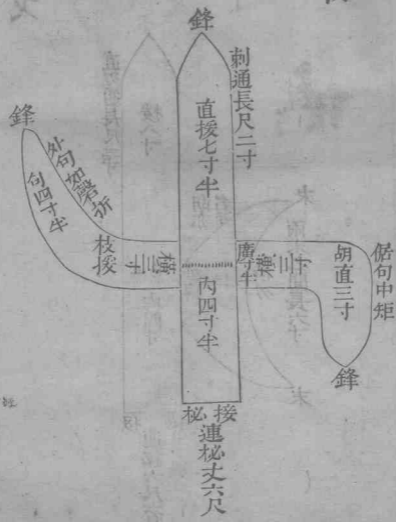 鋒
刺通長尺二寸
直援七寸半
鋒
外句如磬折
句四寸半
枝援
橫三寸
廣寸半
橫三寸
胡直三寸
倨句中矩
鋒
內四寸半
接柲
連柲丈六尺